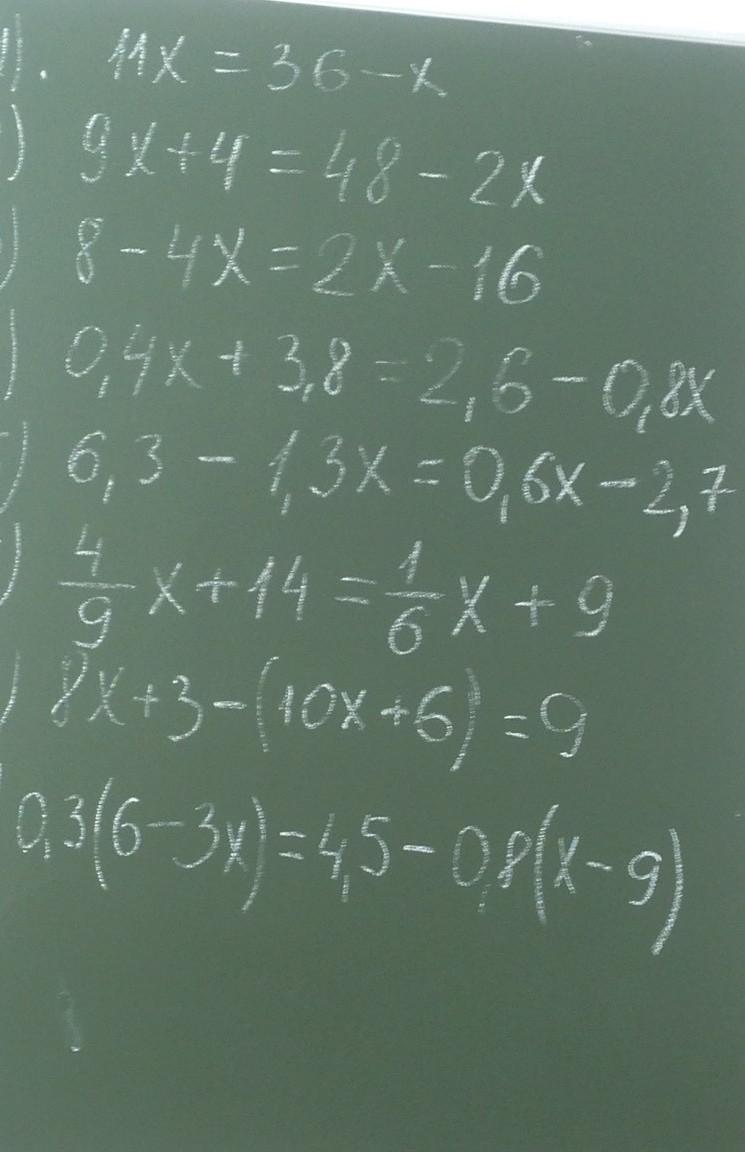 . 11x = 36 - x
) 9x + 4 = 48 - 2x
) 8 - 4x = 2x - 16
) 0,4x + 3,8 = 2,6 - 0,8x
) 6,3 - 1,3x = 0,6x - 2,7
) 4/9 x + 14 = 1/6 x + 9
) 8x + 3 - (10x + 6) = 9
0,3(6 - 3x) = 4,5 - 0,8(x - 9)